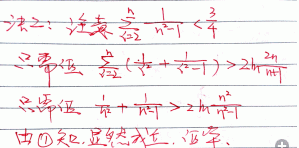 法2: 注意 $\sum_{i=2}^{n} \frac{1}{n^2-1} < \frac{3}{4}$
只需证 $\sum_{i=2}^{n} (\frac{1}{i^2} + \frac{1}{i^2-1}) > 2\ln\frac{2n}{n+1}$
只需证 $\frac{1}{n^2} + \frac{1}{n^2-1} > 2\ln\frac{n^2}{n^2-1}$
由①知显然成立, 证毕.